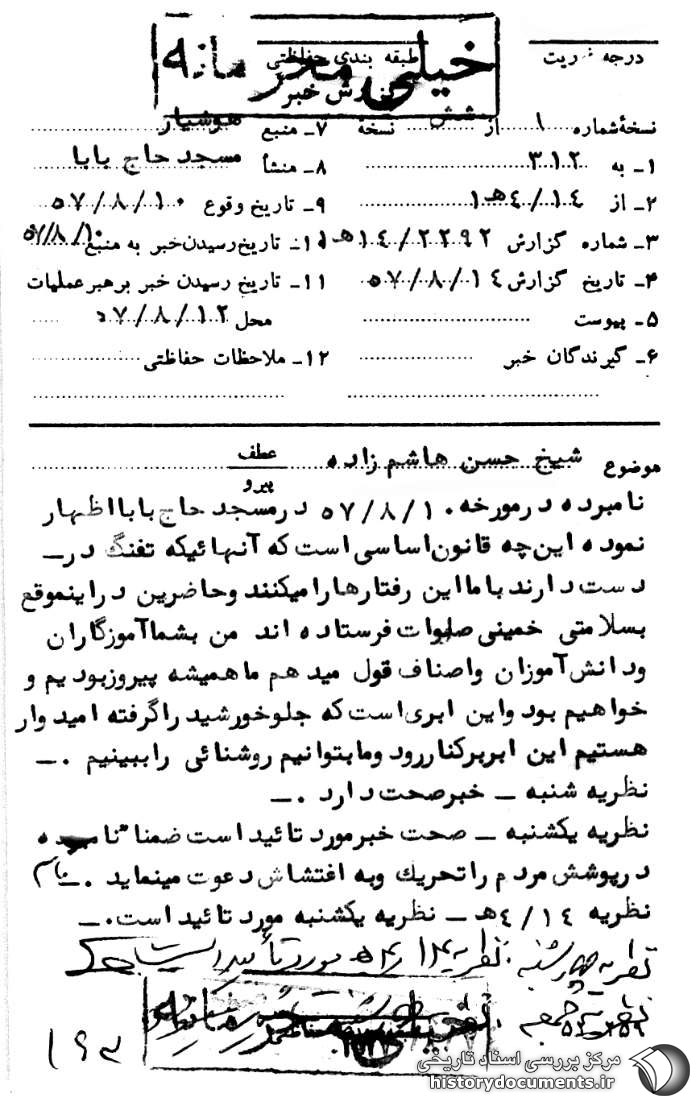 خیلی محرمانه
درجه فوریت
طبقه بندی حفاظتی
گزارش خبر
نسخهٔ شماره ۱ از شش نسخهٔ
۱ـ به ۳۱۲
۲ـ از ۱۴/۴هـ۱
۳ـ شماره گزارش ۲۲۹۲/۱۴هـ۱
۴ـ تاریخ گزارش ۵۷/۸/۱۴
۵ـ پیوست
۶ـ گیرندگان خبر
۷ـ منبع هوشیار
۸ـ منشأ مسجد حاج بابا
۹ـ تاریخ وقوع ۵۷/۸/۱۰
۱۰ـ تاریخ رسیدن خبر به منبع ۵۷/۸/۱۰
۱۱ـ تاریخ رسیدن خبر برهبر عملیات
محل ۵۷/۸/۱۲
۱۲ـ ملاحظات حفاظتی
موضوع شیخ حسن هاشم زاده
عطف
پیرو
نامبرده درمورخه ۵۷/۸/۱۰ درمسجد حاج بابا اظهار
نموده این چه قانون اساسی است که آنهائیکه تفنگ در ـ
دست دارند با ما این رفتارها را میکنند وحاضرین دراینموقع
بسلامتی خمینی صلوات فرستاده اند من بشما آموزگاران
ودانش آموزان واصناف قول میدهم ما همیشه پیروزبودیم و
خواهیم بود واین ابری است که جلوخورشید را گرفته امیدوار
هستیم این ابربرکناررود ومابتوانیم روشنائی راببینیم .ـ
نظریه شنبه ـ خبرصحت دارد .ـ
نظریه یکشنبه ـ صحت خبرمورد تائید است ضمنا" نامبرده
درپوشش مردم را تحریك وبه اغتشاش دعوت مینماید .ـ
نظریه ۱۴/۴هـ ـ نظریه یکشنبه مورد تائید است.ـ
نظریه چهارشنبه . نظریه ۱۴/۴هـ مورد تأیید است
نظریه جمعه
خیلی محرمانه
مرکز بررسی اسناد تاریخی
historydocuments.ir